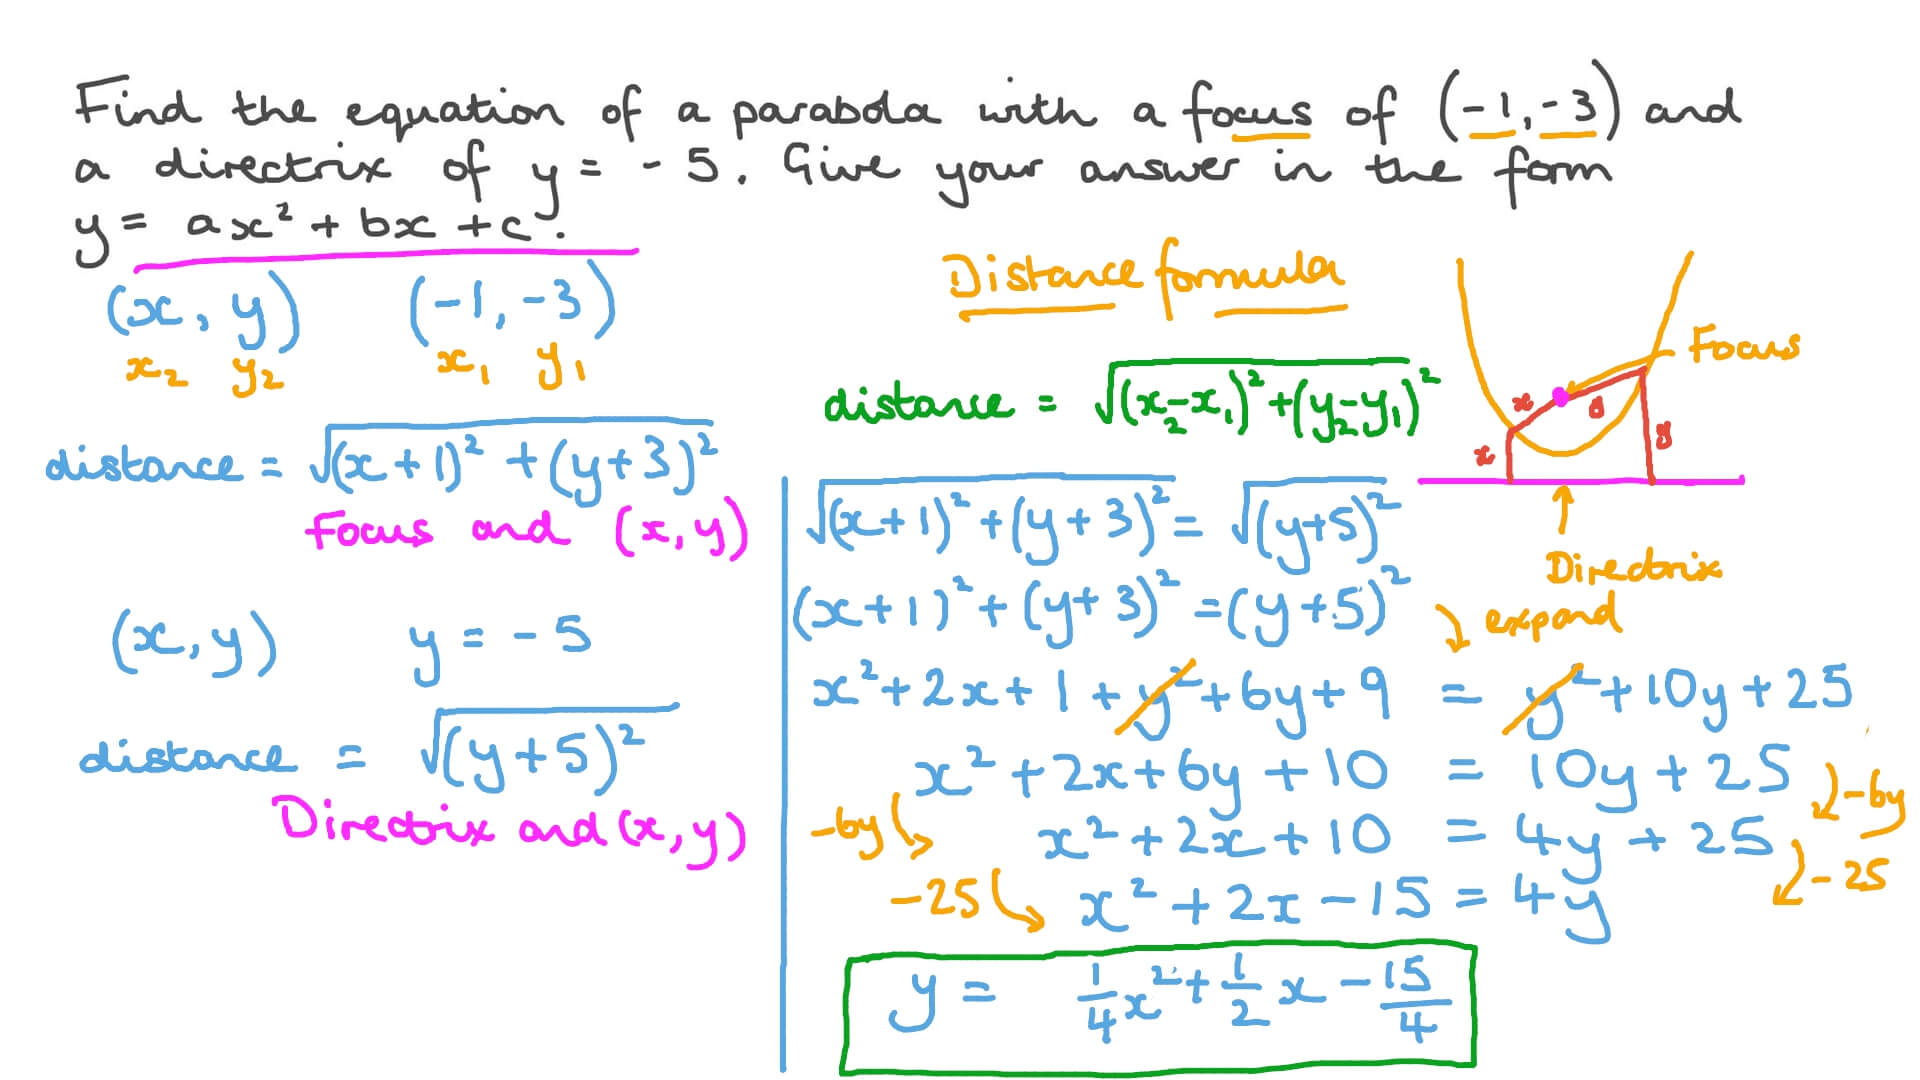 Find the equation of a parabola with a focus of (-1,-3) and
a directrix of y = -5. Give your answer in the form
y = ax² + bx + c.
(x, y) (-1, -3)
x₂ y₂ x₁ y₁
distance = √((x+1)² + (y+3)²)
Focus and (x, y)
(x, y) y = -5
distance = √((y+5)²)
Directrix and (x, y)
Distance formula
distance = √((x₂-x₁)² + (y₂-y₁)²)
Focus
x y
x y
Directrix
√((x+1)² + (y+3)²) = √((y+5)²)
(x+1)² + (y+3)² = (y+5)²
expand
x² + 2x + 1 + y² + 6y + 9 = y² + 10y + 25
x² + 2x + 6y + 10 = 10y + 25
-6y -6y
x² + 2x + 10 = 4y + 25
-25 -25
x² + 2x - 15 = 4y
y = 1/4 x² + 1/2 x - 15/4